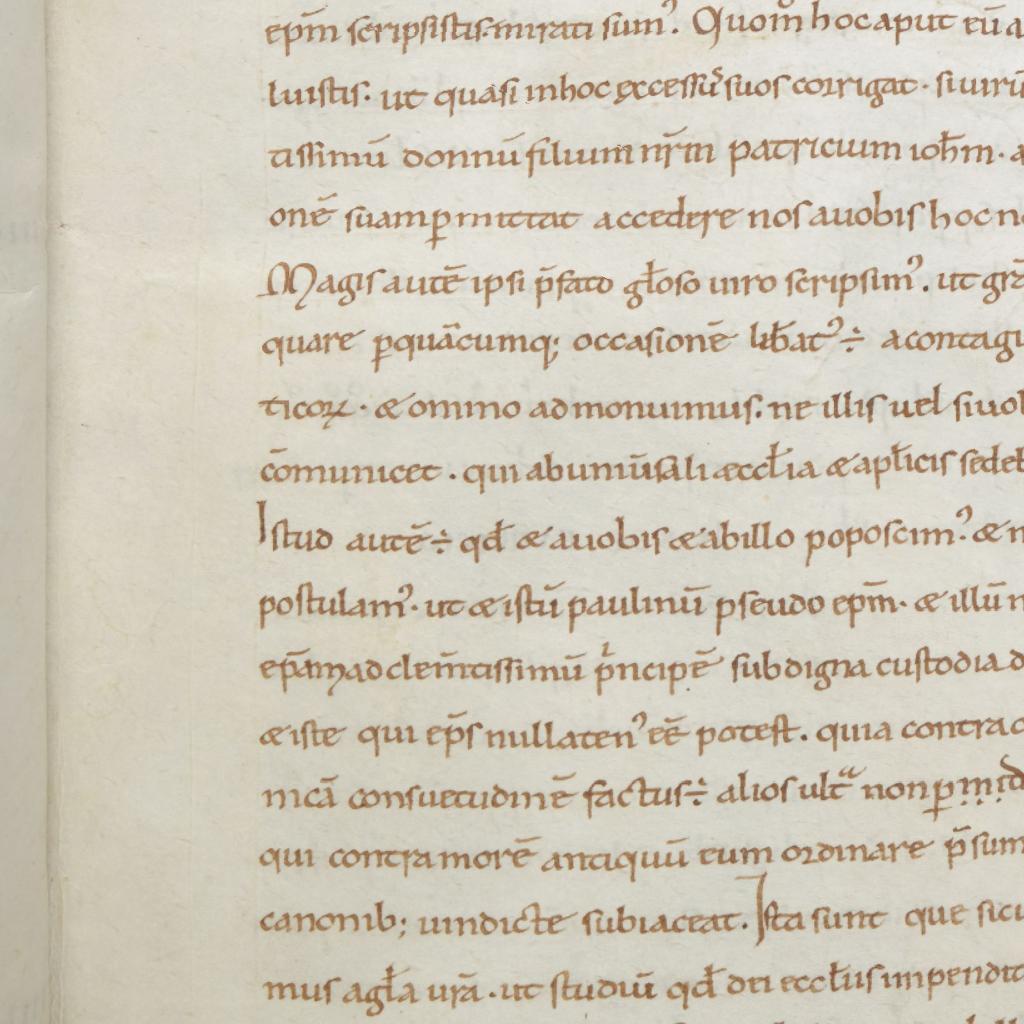 ep̄m scripsistis. mirati sumꝰ. Quom̊ hoc aput eū a
luistis. ut quasi in hoc excessū suos corrigat. si uirū
tissimū donnū filium nr̄m patricium ioh̄m. a
onē suam ꝑmittat accedere nos a uobis hoc n
Magis autē ipsi p̄fato gl̄oso uiro scripsimꝰ. ut gr̄
quare ꝑ quācumq; occasionē lib̄atꝰ ÷ a contagi
ticoꝝ. & omino admonuimus. ne illis uel si uol
cōmunicet. qui ab uniūsali æccl̄ia & apl̄icis sedeb
Istud autē ÷ qd̄ & a uobis & ab illo poposcimꝰ. & n
postulamꝰ. ut & istū paulinū pseudo ep̄m. & illū
ep̄am ad clem̄tissimū pͥncipē sub digna custodia d
& iste qui ep̄s nullatenꝰ eē̄ potest. quia contra
nicā consuetudinē factus ÷ alios ultᵃ non ꝑ
qui contra morē antiquū eum ordinare p̄sum
canonib; uindicte subiaceat. Ista sunt que sicu
mus agl̄a ur̄a. ut studiū qd̄ dei eccl̄iis inpendit